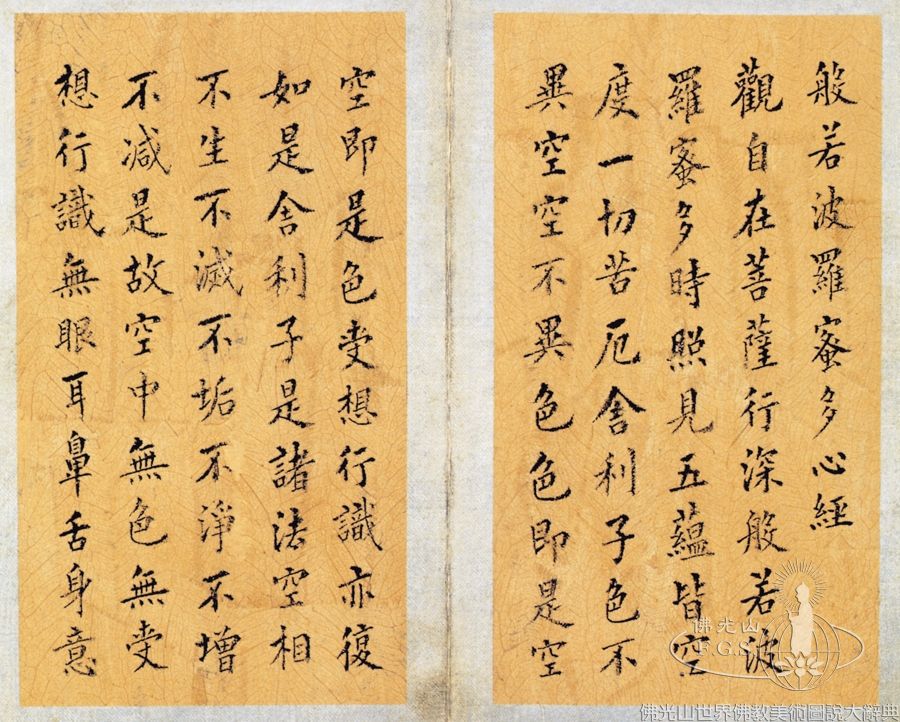 般若波羅蜜多心經
觀自在菩薩行深般若波
羅蜜多時照見五蘊皆空
度一切苦厄舍利子色不
異空空不異色色即是空
空即是色受想行識亦復
如是舍利子是諸法空相
不生不滅不垢不淨不增
不減是故空中無色無受
想行識無眼耳鼻舌身意
佛光山
F.G.S.
佛光山世界佛教美術圖說大辭典